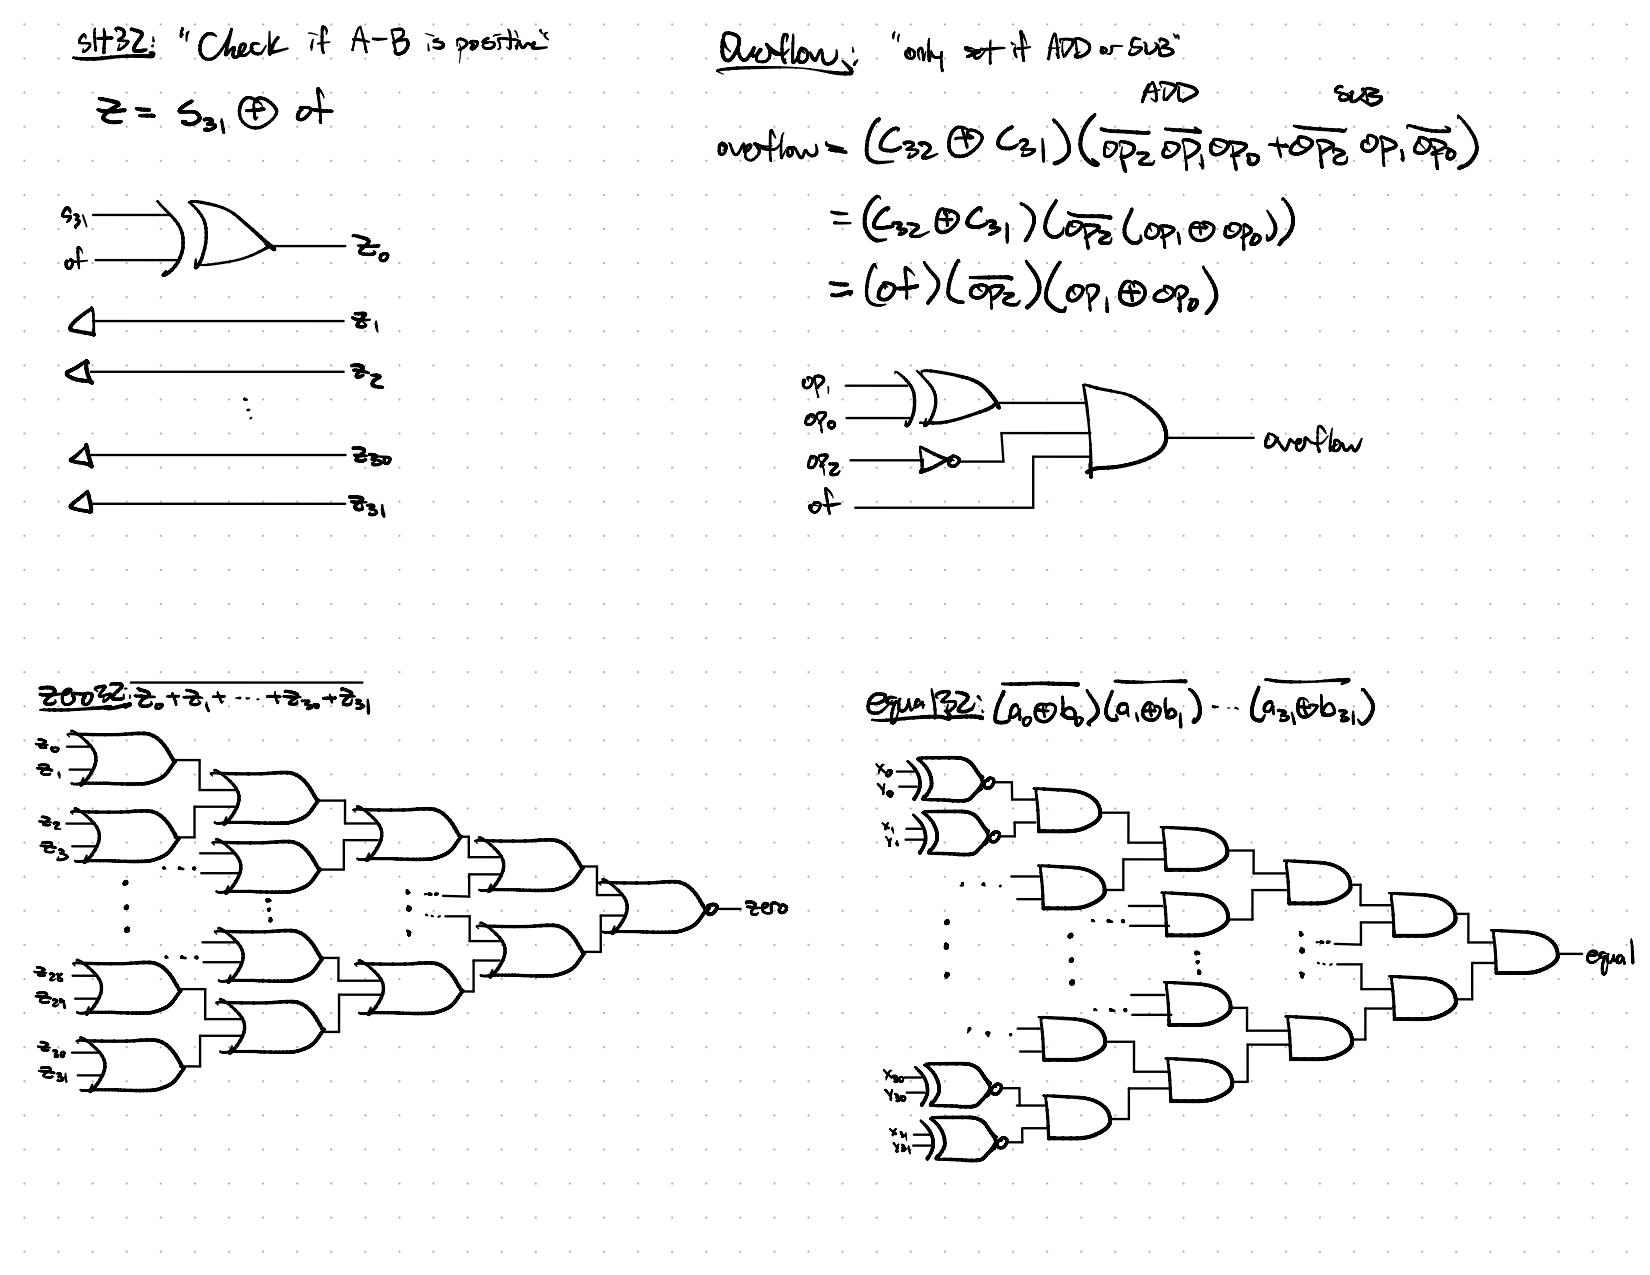 slt32: "Check if A-B is positive"
z = s₃₁ ⊕ of
s₃₁
of
z₀
z₁
z₂
⋮
z₃₀
z₃₁
Overflow: "only set if ADD or SUB"
ADD SUB
overflow = (C₃₂ ⊕ C₃₁)(o̅p̅₂ o̅p̅₁ op₀ + o̅p̅₂ op₁ o̅p̅₀)
= (C₃₂ ⊕ C₃₁)(o̅p̅₂(op₁ ⊕ op₀))
= (of)(o̅p̅₂)(op₁ ⊕ op₀)
op₁
op₀
op₂
of
overflow
zero32: \overline{z₀+z₁+ ··· +z₃₀+z₃₁}
z₀
z₁
z₂
z₃
z₂₈
z₂₉
z₃₀
z₃₁
zero
equal32: \overline{(a₀⊕b₀)}\overline{(a₁⊕b₁)} ··· \overline{(a₃₁⊕b₃₁)}
x₀
y₀
x₁
y₁
x₃₀
y₃₀
x₃₁
y₃₁
equal